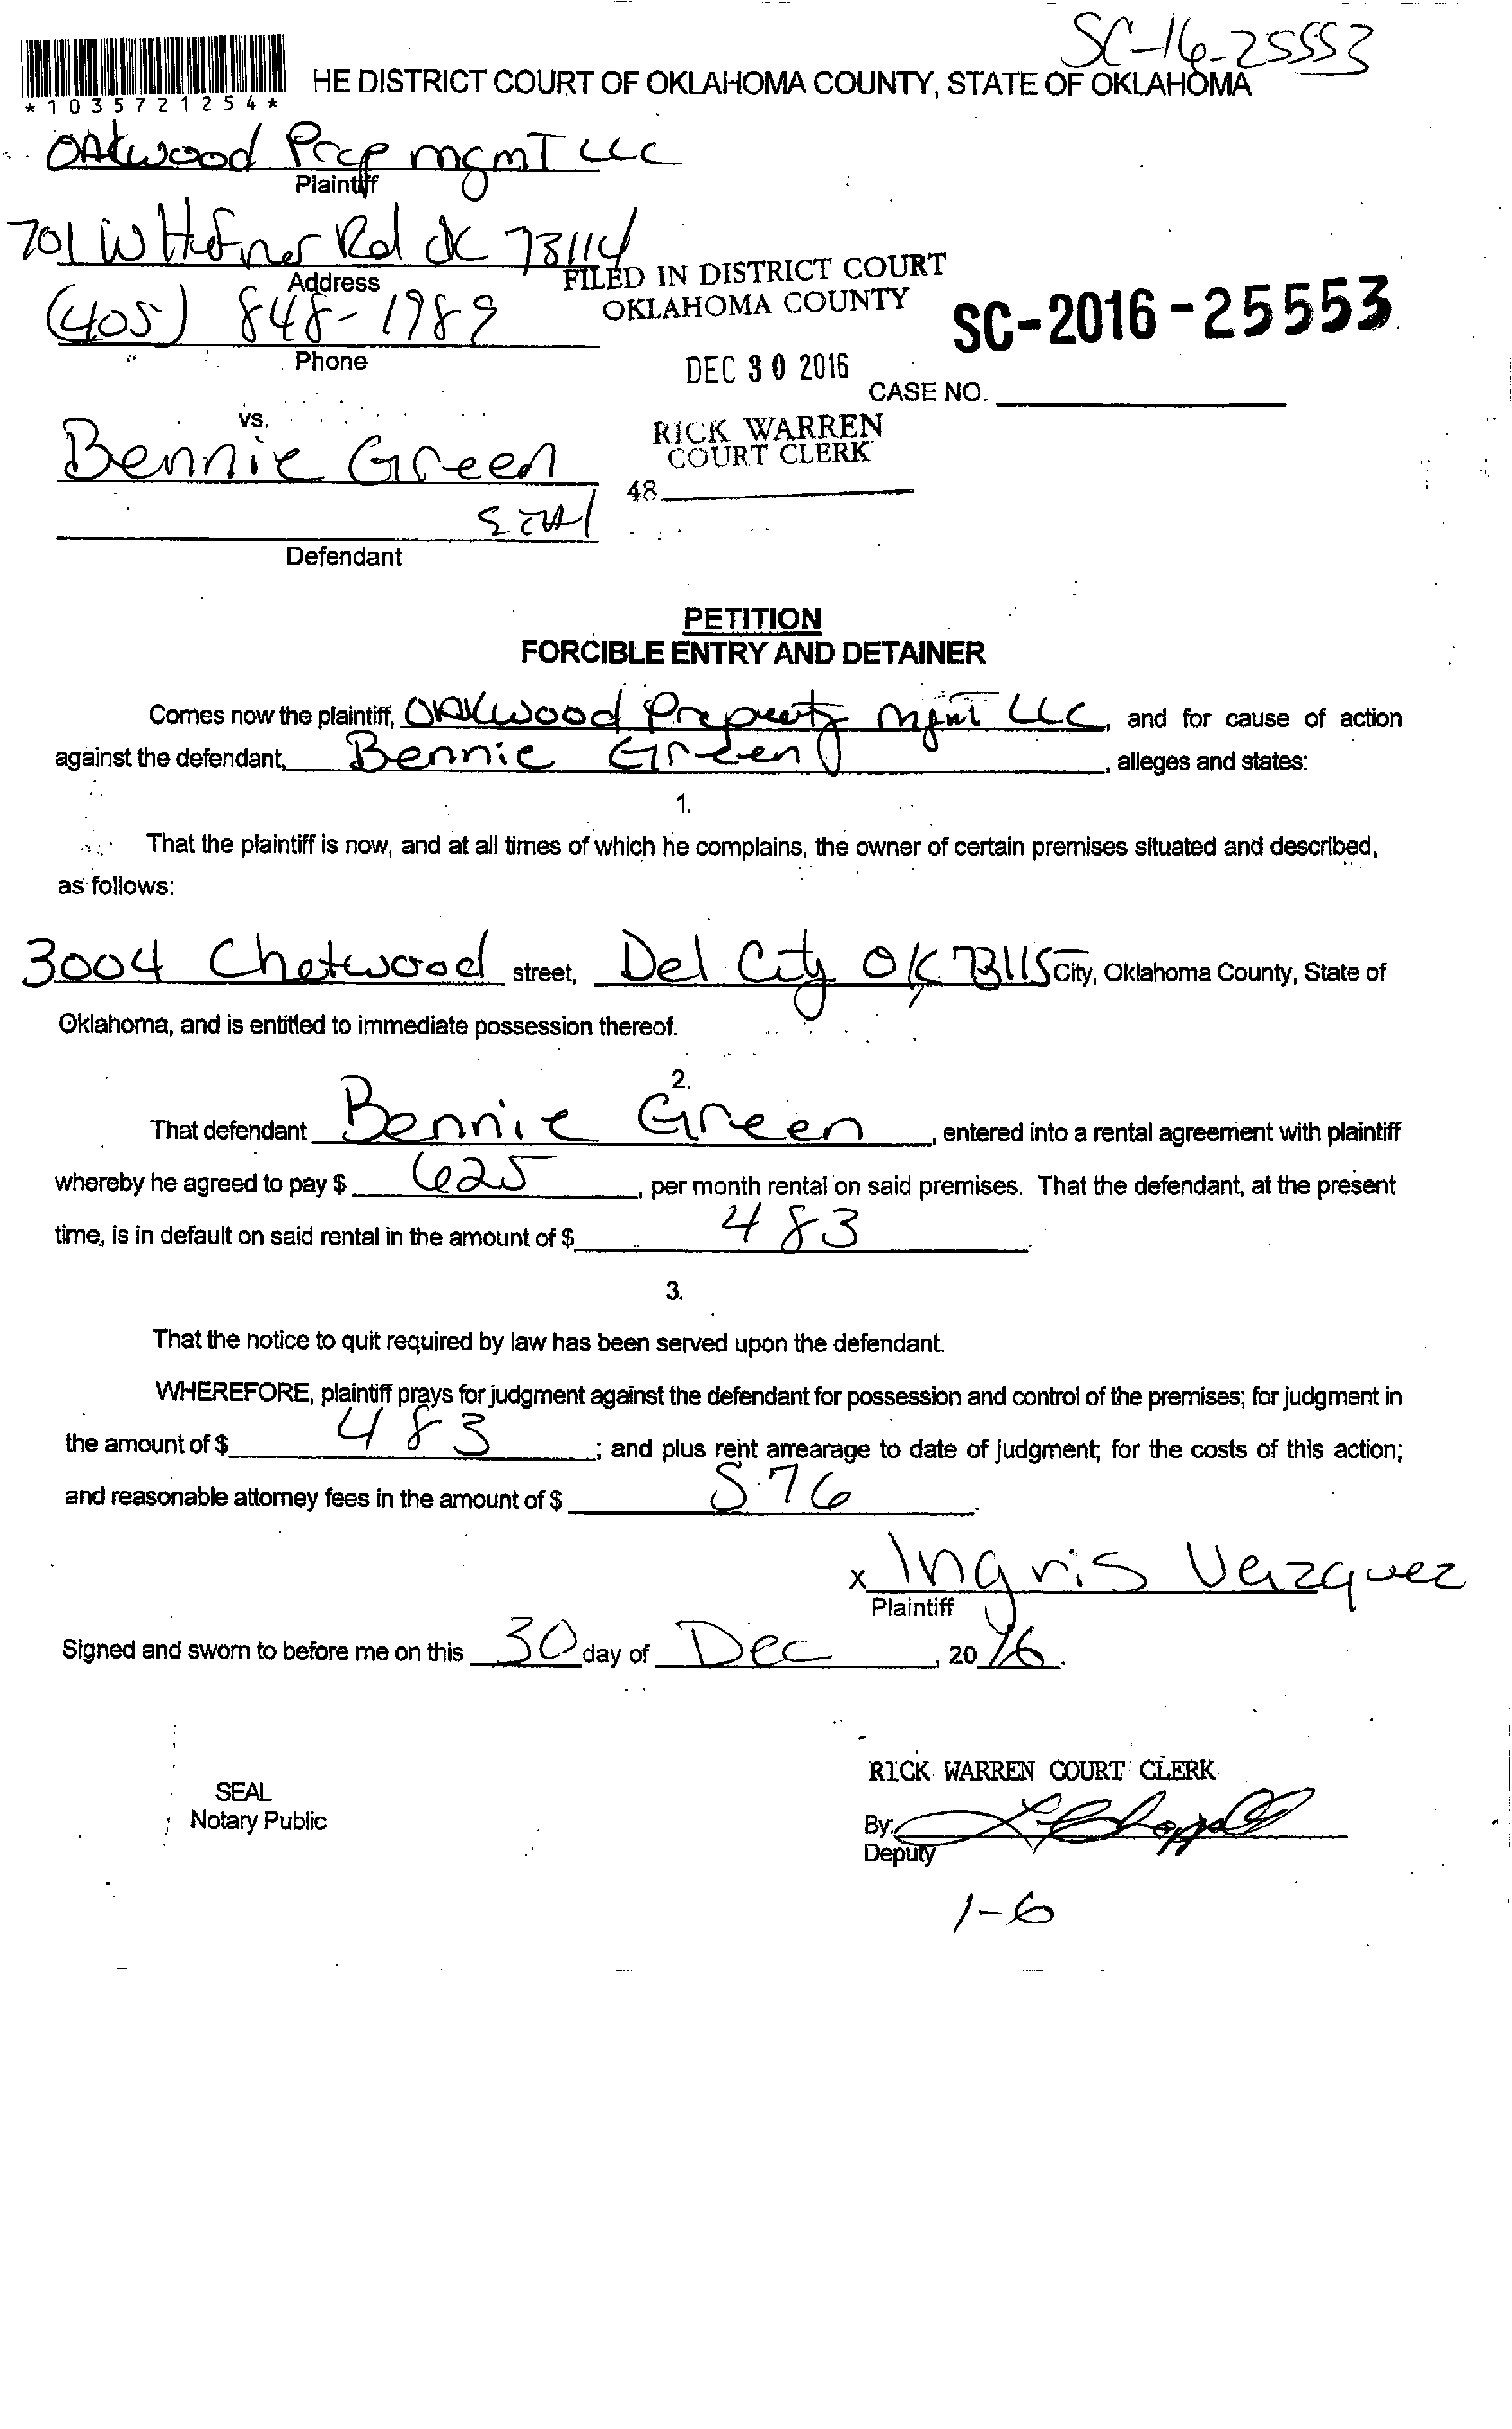 SC-16-25553
HE DISTRICT COURT OF OKLAHOMA COUNTY, STATE OF OKLAHOMA
*1035721254*
OAkwood Prop mgmT LLC
Plaintiff
701 W Hefner Rd OC 73114
Address
FILED IN DISTRICT COURT
OKLAHOMA COUNTY
(405) 848-1989
SC-2016-25553
Phone
DEC 30 2016
CASE NO.
vs.
RICK WARREN
COURT CLERK
Bennie Green
48
Defendant
PETITION
FORCIBLE ENTRY AND DETAINER
Comes now the plaintiff, OAKwood Property Mgmt LLC, and for cause of action
against the defendant, Bennie Green, alleges and states:
1.
That the plaintiff is now, and at all times of which he complains, the owner of certain premises situated and described,
as follows:
3004 Chetwood street, Del City OK 73115 City, Oklahoma County, State of
Oklahoma, and is entitled to immediate possession thereof.
2.
That defendant Bennie Green, entered into a rental agreement with plaintiff
whereby he agreed to pay $ 625, per month rental on said premises. That the defendant, at the present
time, is in default on said rental in the amount of $ 483.
3.
That the notice to quit required by law has been served upon the defendant.
WHEREFORE, plaintiff prays for judgment against the defendant for possession and control of the premises; for judgment in
the amount of $ 483; and plus rent arrearage to date of judgment; for the costs of this action;
and reasonable attorney fees in the amount of $ 576.
x Ingris Vazquez
Plaintiff
Signed and sworn to before me on this 30 day of Dec, 20 16.
RICK WARREN COURT CLERK
SEAL
Notary Public
By:
Deputy
1-6